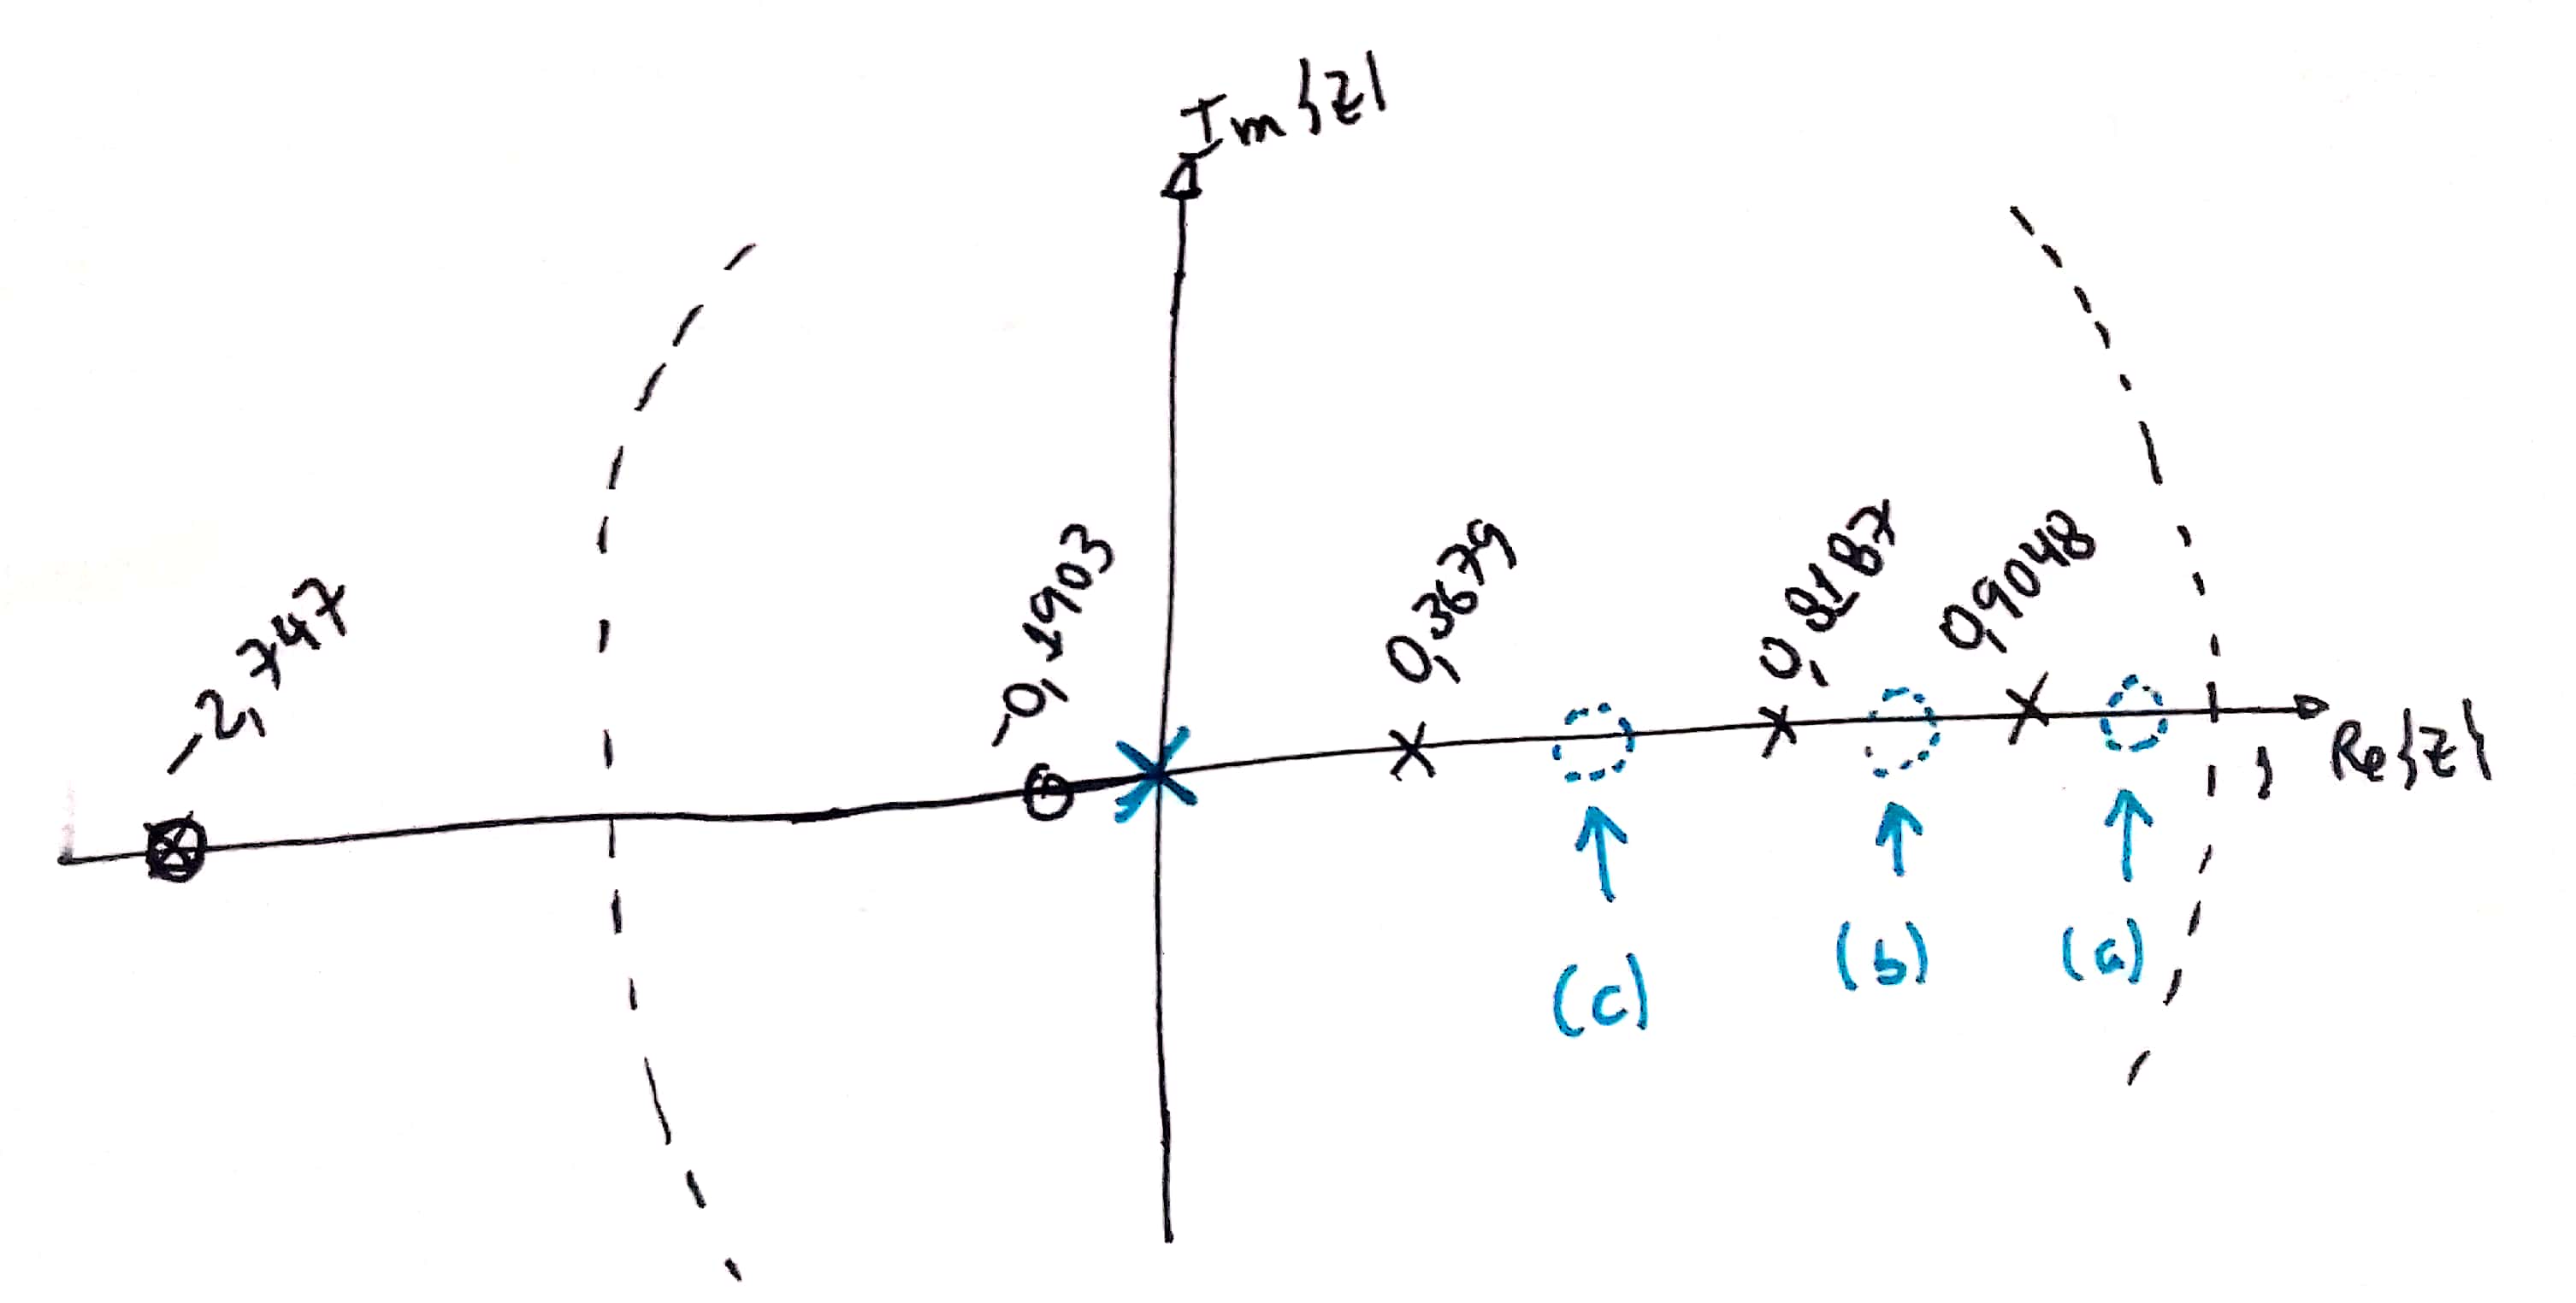 Im{z}
-2,747
-0,1903
0,3679
0,8187
0,9048
Re{z}
1
(c)
(b)
(a)